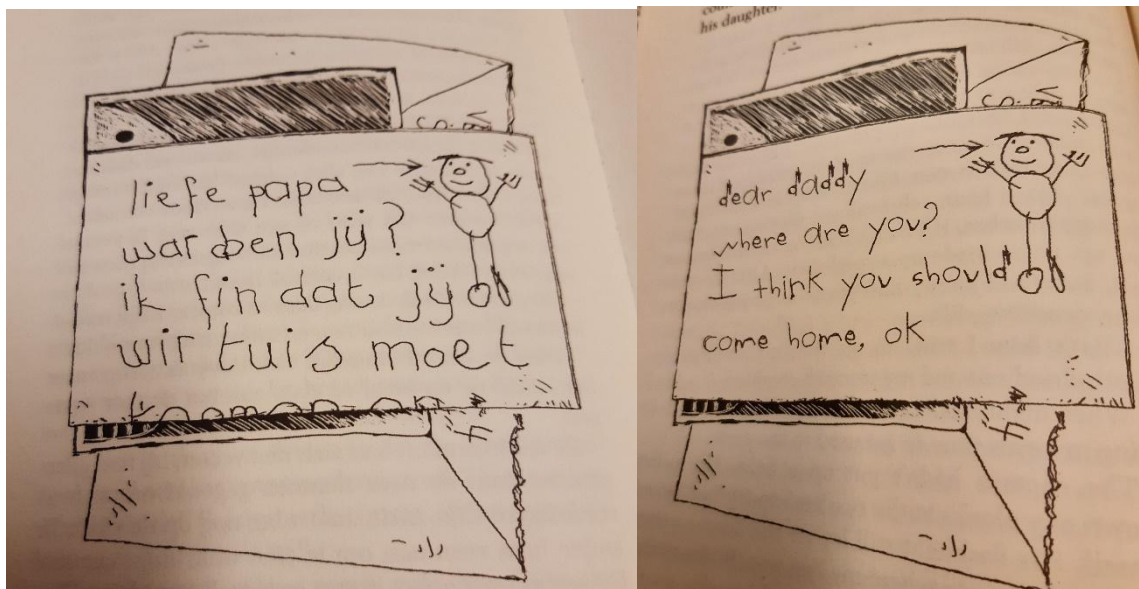 liefe papa
war ben jij?
ik fin dat jij
wir tuis moet
his daughter.
dear daddy
where are you?
I think you should
come home, ok